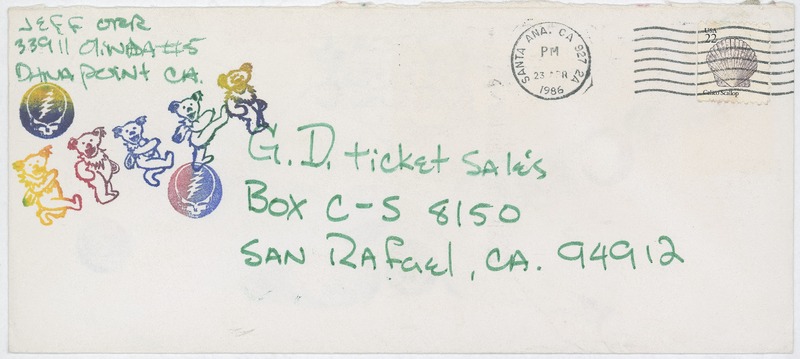 JEFF ORR
33911 OLINDA #5
DANA POINT CA.
SANTA ANA, CA 927 2A
PM
23 APR
1986
USA
22
Calico Scallop
G.D. ticket Sales
Box C-S 8150
SAN Rafael, CA. 94912